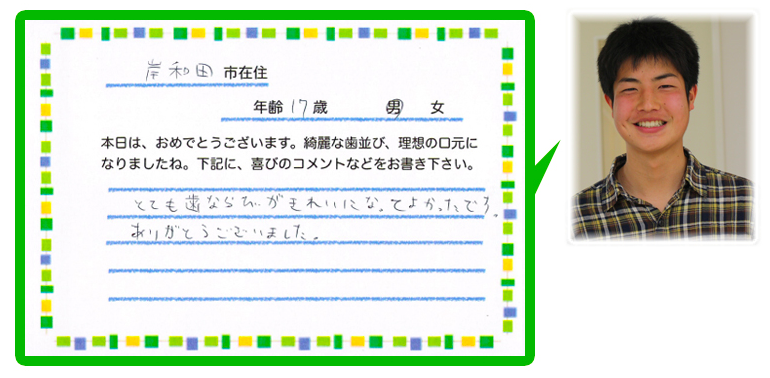 岸和田 市在住
年齢 17 歳 男 女
本日は、おめでとうございます。綺麗な歯並び、理想の口元に
なりましたね。下記に、喜びのコメントなどをお書き下さい。
とても歯ならびがきれいになってよかったです。
ありがとうございました。